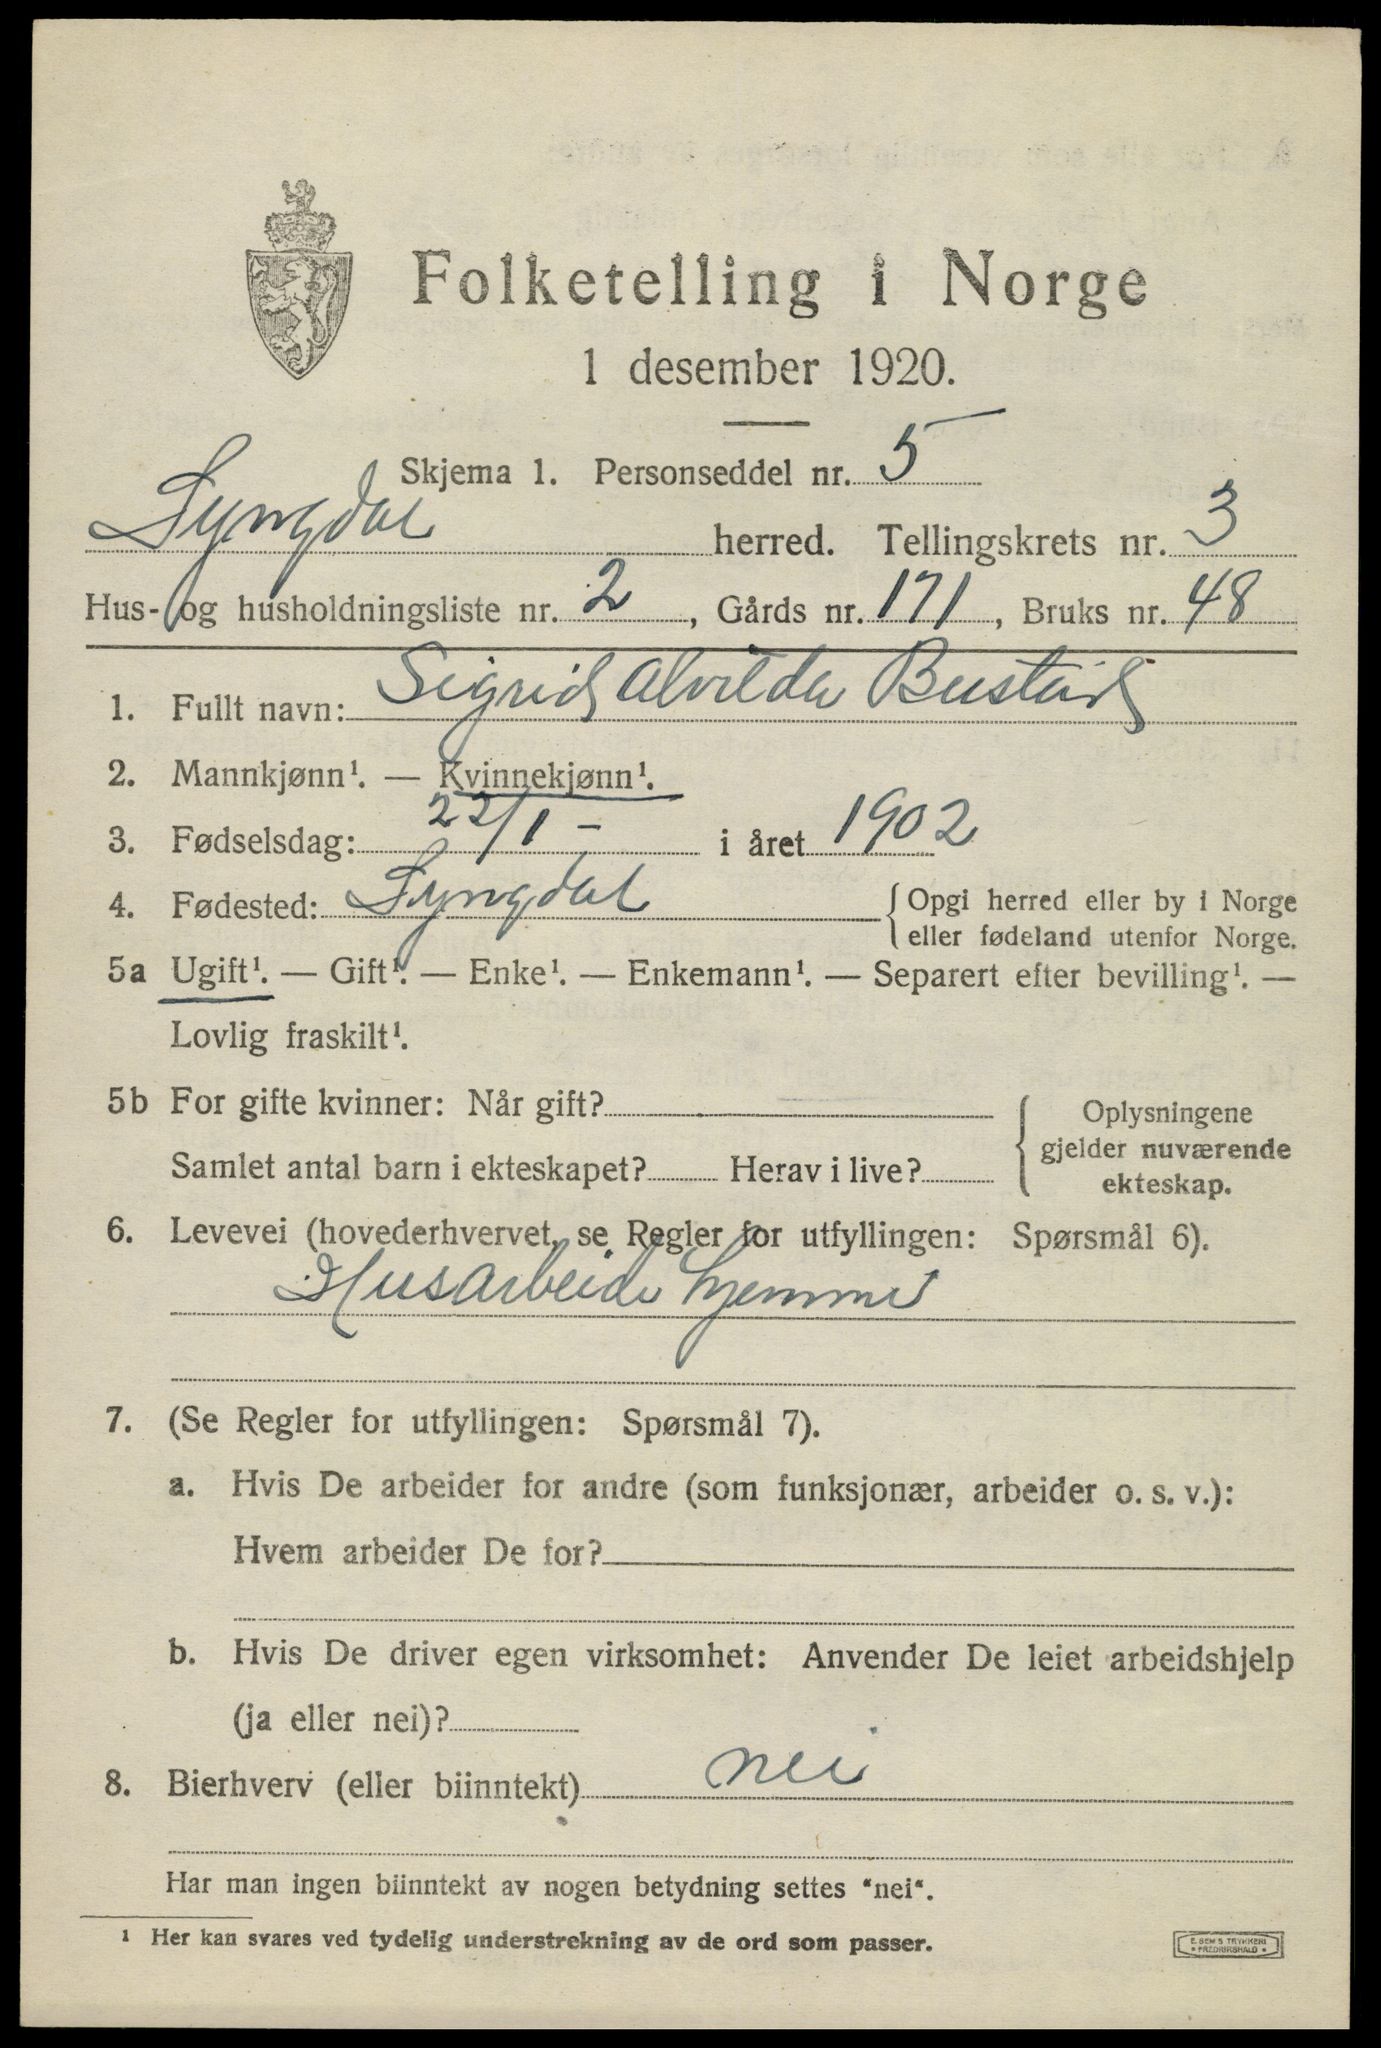 Folketelling i Norge
1 desember 1920.
Skjema 1. Personseddel nr. 5
Lyngdal herred. Tellingskrets nr. 3
Hus- og husholdningsliste nr. 2, Gårds nr. 171, Bruks nr. 48
1. Fullt navn: Sigrid Alvilda Bustad
2. Mannkjønn¹. — Kvinnekjønn¹.
3. Fødselsdag: 22/1 - i året 1902
4. Fødested: Lyngdal {Opgi herred eller by i Norge
eller fødeland utenfor Norge.
5a Ugift¹. — Gift¹. — Enke¹. — Enkemann¹. — Separert efter bevilling¹. —
Lovlig fraskilt¹.
5b For gifte kvinner: Når gift? { Oplysningene
gjelder nuværende
Samlet antal barn i ekteskapet? Herav i live?
ekteskap.
6. Levevei (hovederhvervet, se Regler for utfyllingen: Spørsmål 6).
Husarbeide hjemme
7. (Se Regler for utfyllingen: Spørsmål 7).
a. Hvis De arbeider for andre (som funksjonær, arbeider o. s. v.):
Hvem arbeider De for?
b. Hvis De driver egen virksomhet: Anvender De leiet arbeidshjelp
(ja eller nei)?
8. Bierhverv (eller biinntekt) nei
Har man ingen biinntekt av nogen betydning settes "nei".
¹ Her kan svares ved tydelig understrekning av de ord som passer.
E. SEM'S TRYKKERI
• FREDRIKSHALD •